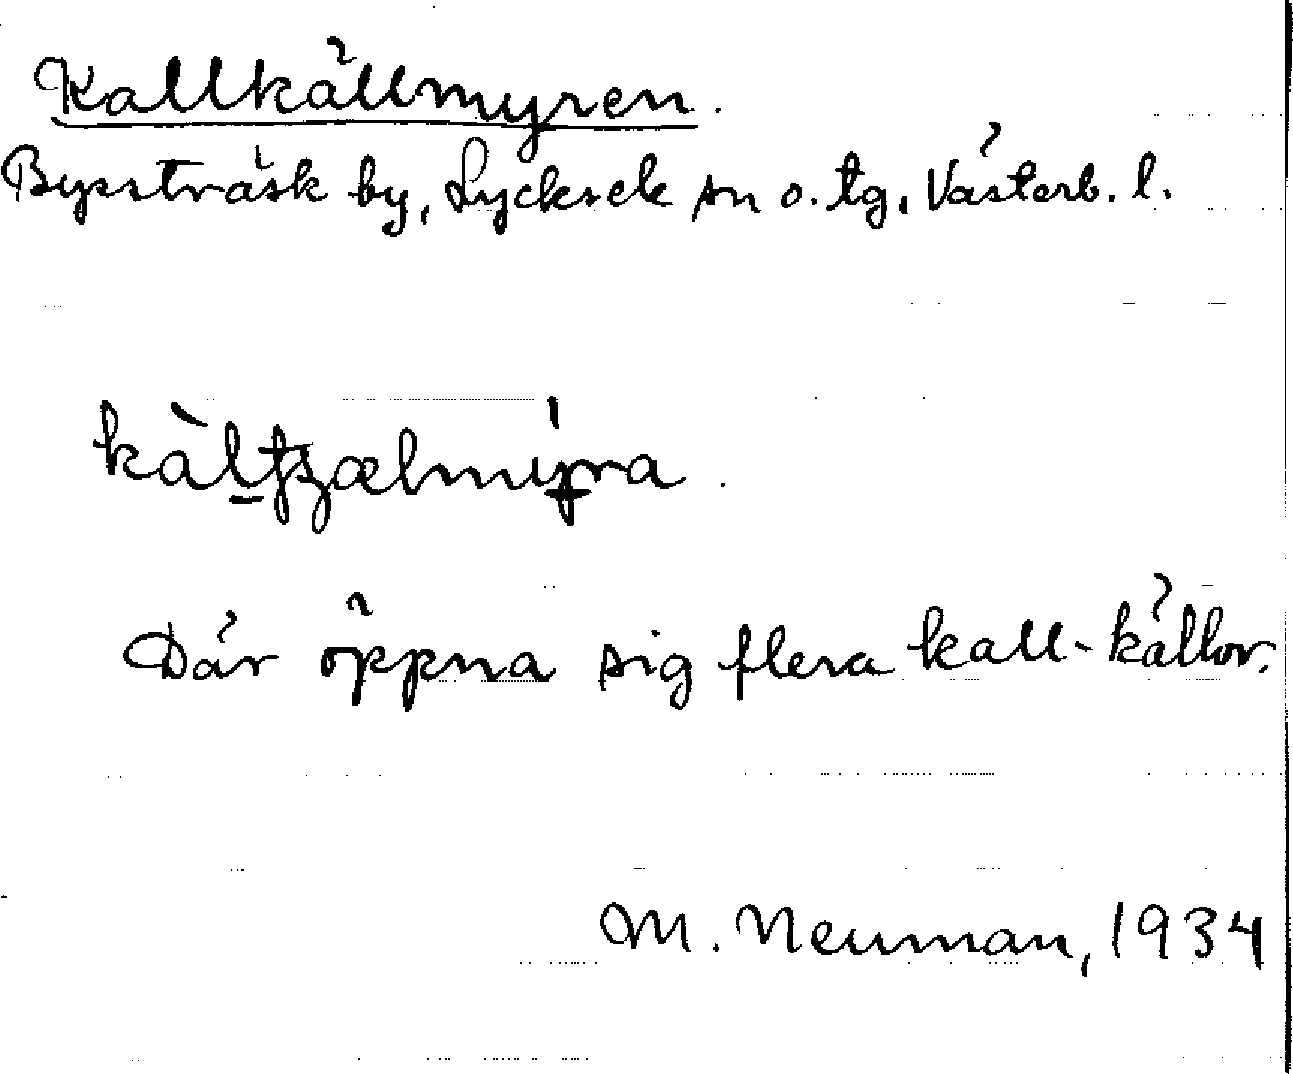 Kallkällmyren.
Byssträsk by, Lycksele sn o. tg, Västerb. l.
kàlt̶ʒælmyra.
Där öppna sig flera kall-källor.
M. Neuman, 1934